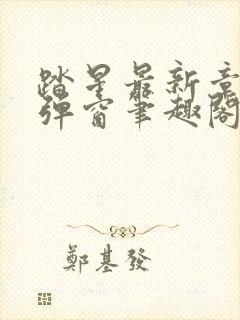 踏星最新章
弹窗笔趣阁
鄭基發